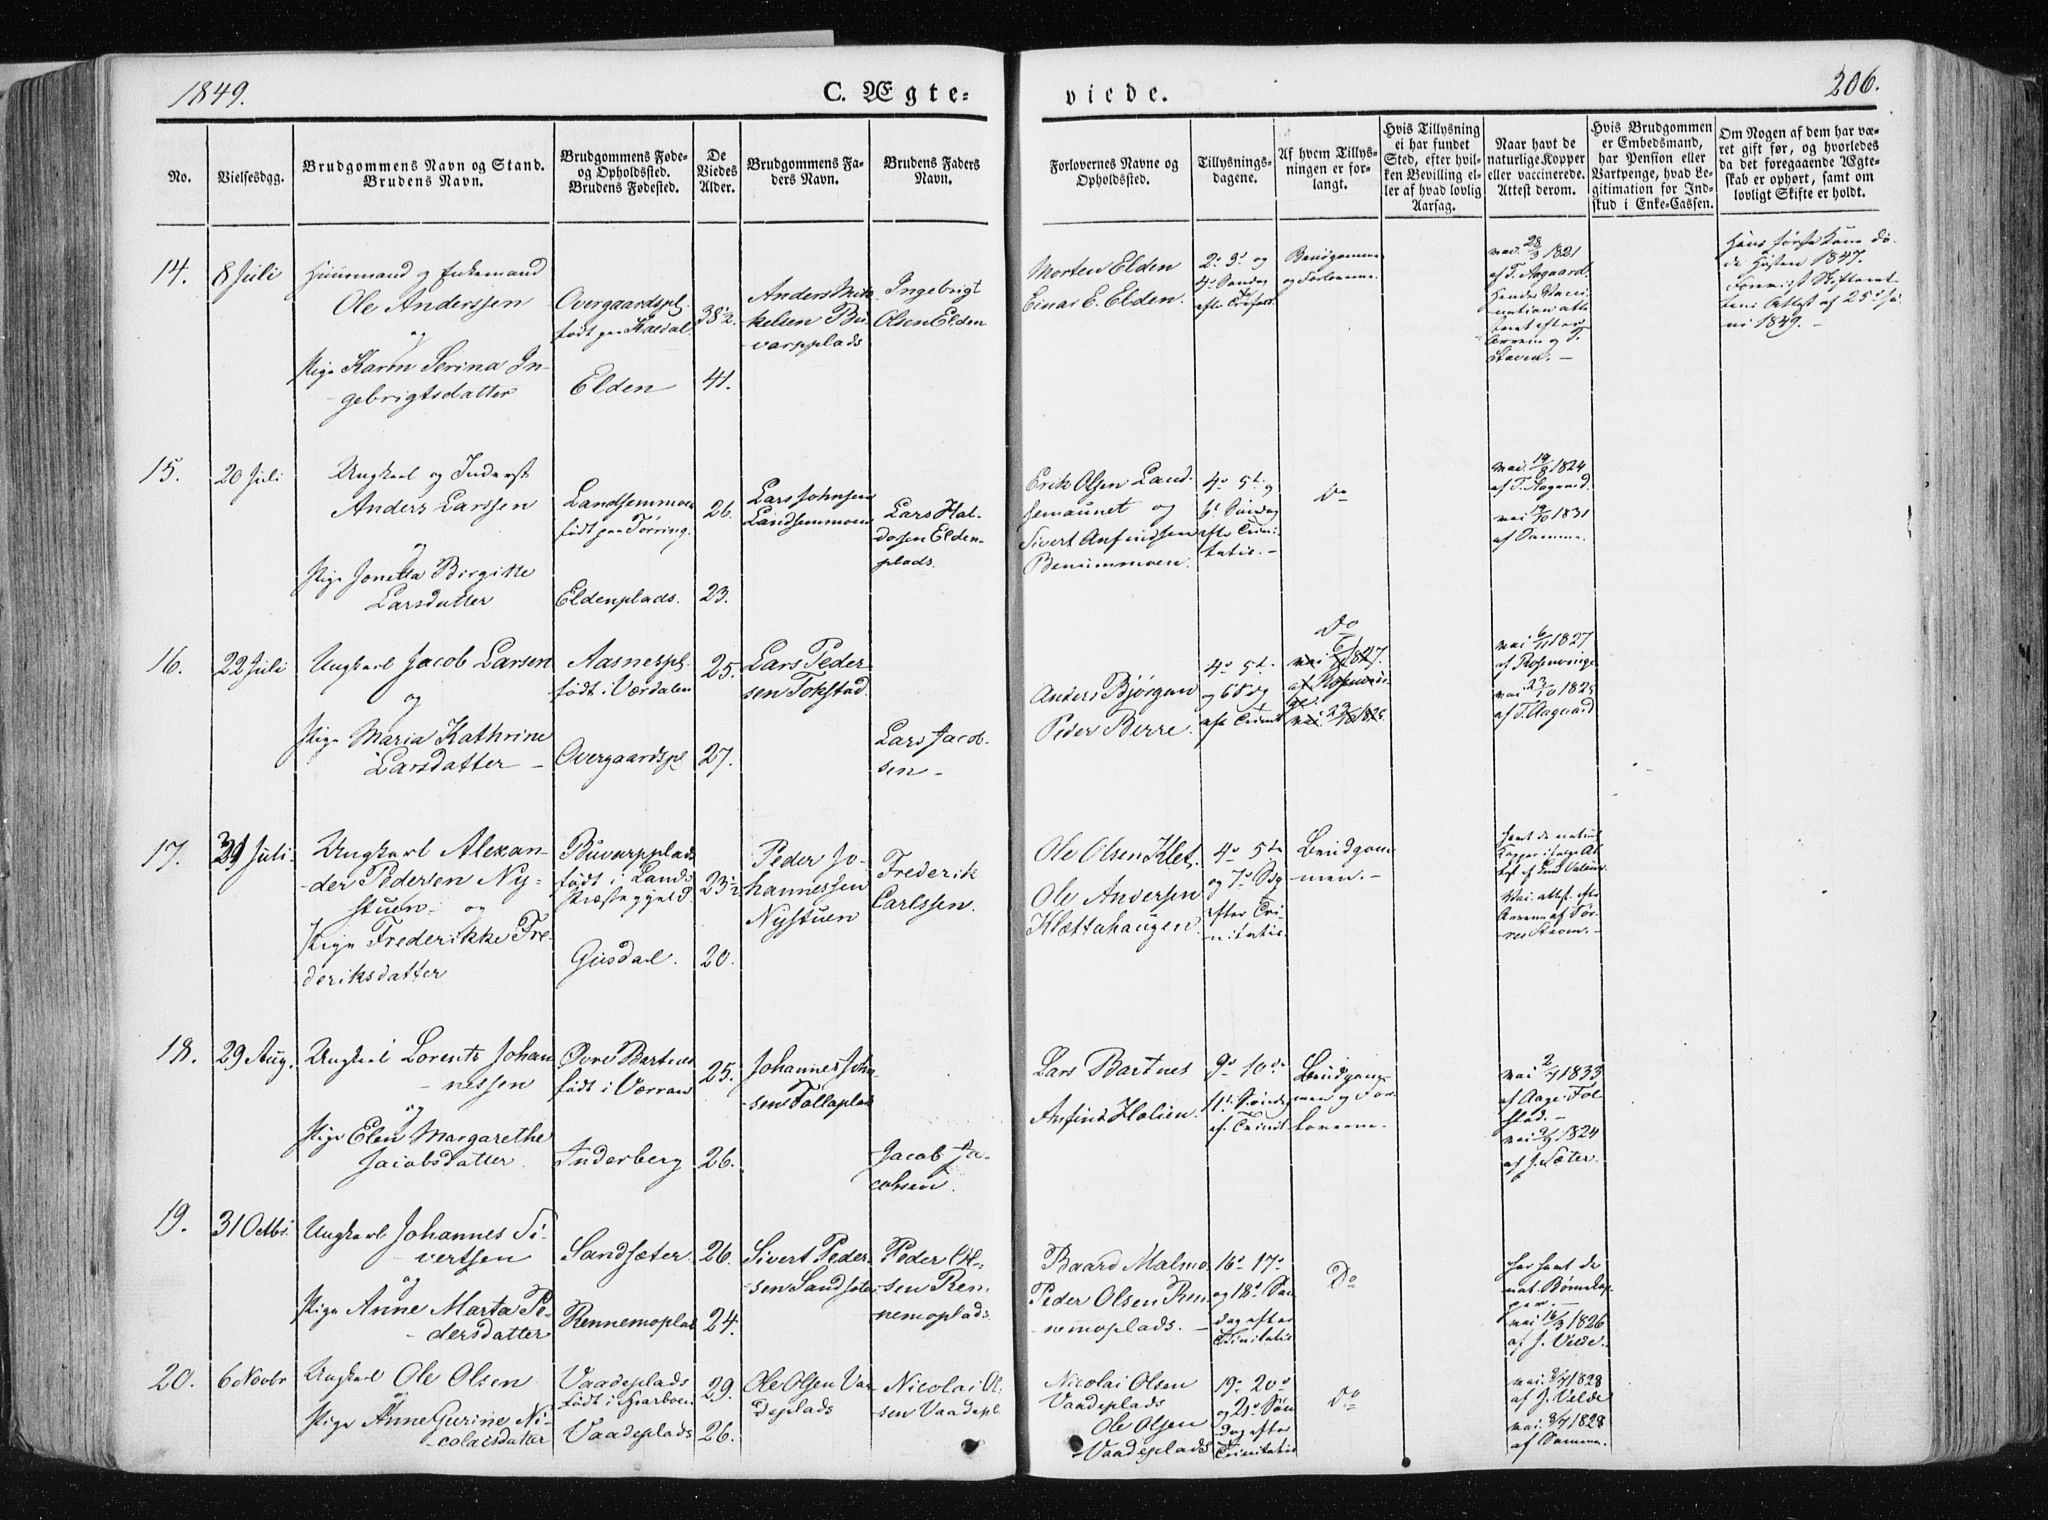 1849.
C. Ægte=
viede.
206.
No.
Vielsesdag.
Brudgommens Navn og Stand.
Brudens Navn.
Brudgommens Føde-
og Opholdssted.
Brudens Fødested.
De
Viedes
Alder.
Brudgommens Fa-
ders Navn.
Brudens Faders
Navn.
Forlovernes Navne og
Opholdssted.
Tillysnings-
dagene.
Af hvem Tillys-
ningen er for-
langt.
Hvis Tillysning
ei har fundet
Sted, efter hvil-
ken Bevilling el-
ler af hvad lovlig
Aarsag.
Naar havt de
naturlige Kopper
eller vaccinerede.
Attest derom.
Hvis Brudgommen
er Embedsmand,
har Pension eller
Vartpenge, hvad Le-
gitimation for Ind-
skud i Enke-Cassen.
Om Nogen af dem har væ-
ret gift før, og hvorledes
da det foregaaende Ægte-
skab er ophørt, samt om
lovligt Skifte er holdt.
14.
8 Juli
Huusmand og Enkemand
Ole Anderssen
og
Pige Karen Serina In-
gebrigtsdatter
Overgaardspl.
født paa Kaldal.
Elden
38½.
41.
Anders Mik-
kelsen Bu-
varpplads
Ingebrigt
Olsen Elden
Morten Elden
Einar E. Elden.
2d 3d og
4d Søndag
efter Trefold.
Brudgommen
og Forloverne.
vac. 28/3 1821
af T. Aagaard.
Hendes Vacci-
nation atte-
steret efter
Arrene og T.
Staven.-
Hans første Kone dø-
de Høsten 1847.
Foreviist Skifteret-
tens Attest af 25d Ju-
ni 1849.-
15.
20 Juli
Ungkarl og Inderst
Anders Larssen
og
Pige Jonetta Birgitte
Larsdatter
Landsemmoen
født paa Tørring.
Eldenplads.
26.
23.
Lars Johnsen
Landsemmoen
Lars Hal-
dosen Elden-
plads.
Erik Olsen Land-
semaunet og
Sivert Anfindsen
Benummoen.
4d 5te og
6te Søndag
efter Trini-
tatis.-
Do
vac. 19/8 1824
af T. Aagaard.
vac 14/10 1831
af Samme.
16.
22 Juli
Ungkarl Jacob Larsen
og
Pige Maria Kathrine
Larsdatter -
Aasnespl.
født i Værdalen
Overgaardspl
25.
27.
Lars Peder-
sen Tokstad.
Lars Jacob-
sen -
Anders Bjørgan
Peder Berre.
4d 5te
og 6 Sdg
eft. Trinit
Do
vac 6/11 1827.
af Rosenvin-
ge.
vac. 23/10 1825.
vac 6/11 1827
af Rosenvinge
vac 23/10 1825
af T. Aagaard
17.
31 Juli.
Ungkarl Alexan-
der Pedersen Ny-
stuen - og
Pige Frederikke Fre-
deriksdatter
Buvarpplads
født i Lands
Præstegjeld.
Giusdal.
23½
20.
Peder Jo-
hannessen
Nystuen
Frederik
Carlssen.
Ole Olsen Klet.
Ole Andersen
Klættahaugen.
4d 5te
og 7d Sdg
efter Tri-
nitatis.
Brudgom-
men.-
18.
29 Aug.
Ungkarl Lorents Johan-
nessen
og
Pige Elen Margarethe
Jacobsdatter.
Øvre Bartnes
født i Værran
Inderberg
25.
26.
Johannes John-
sen Tollaplad
Jacob Ja-
cobsen.
Lars Bartnes
Anfind Holien.
9de 10de
11te Søndag
ef. Trinit
Brudgom-
men og For-
loverne.
vac 2/7 1833
af Aage Føl-
stad.-
vac 9/7 1824
af J. Sæter.
19.
31 Octbr.
Ungkarl Johannes Si-
vertsen
og
Pige Anne Marta Pe-
dersdatter
Sandsæter.
Rennemoplad
26.
24.
Sivert Peder-
sen Sandsæter
Peder Ol-
sen Ren-
nemoplads.
Baard Malmo
Peder Olsen Ren-
nemoplads.-
16d 17d
og 18d Søn-
dag efter
Trinitatis
Do
har havt de
nat. Børnekop-
per.-
vac 16/3 1826
af J. Velde.
20.
6 Novbr
Ungkarl Ole Olsen
og
Pige Anne Gurine Ni-
colaisdatter
Vaadeplads
født i Snarboen
Vaadeplads
29.
26.
Ole Olsen Vaa-
deplads
Nicolai Ol-
sen Vaadepl.
Nicolai Olsen
Vaadeplads
Ole Olsen
Vaadeplads
19d 20d
og 21d Søn-
dag efter
Trinitatis
Do
vac. 8/7 1828
af J. Velde
vac. 8/7 1828
af Samme.